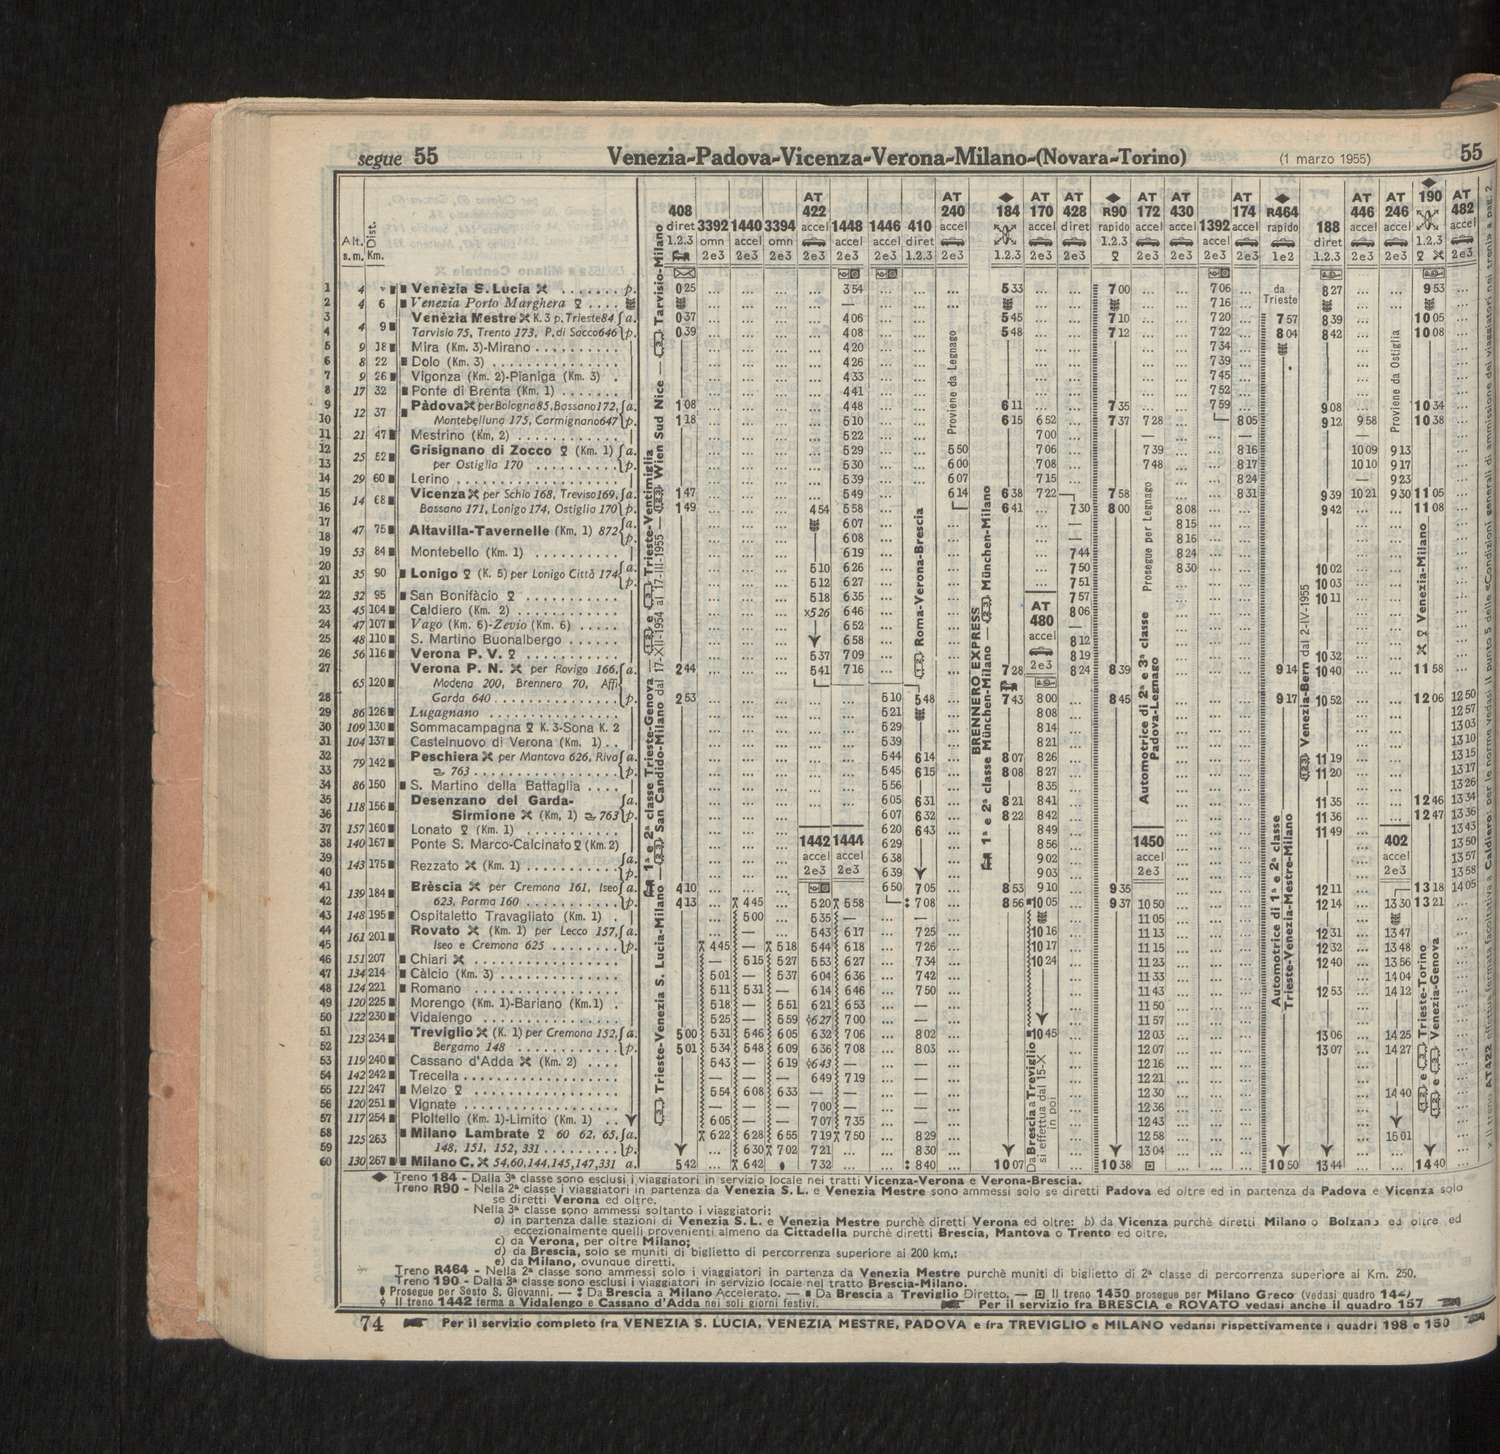 segue 55 Venezia-Padova-Vicenza-Verona-Milano-(Novara-Torino) (1 marzo 1955) 55
408 3392 1440 3394 AT 422 1448 1446 410 AT 240 184 AT 170 AT 428 R90 AT 172 AT 430 1392 AT 174 R464 188 AT 446 AT 246 190 AT 482
Alt. s. m. Dist. Km. diret omn accel omn accel accel accel diret accel accel diret rapido accel accel accel accel rapido diret accel accel accel
1.2.3 2e3 2e3 2e3 2e3 2e3 2e3 1.2.3 2e3 1.2.3 2e3 2e3 1.2.3 2e3 2e3 2e3 2e3 1e2 1.2.3 2e3 2e3 1.2.3 2e3
1 4 Venèzia S. Lucia p. 0 25 3 54 5 33 7 00 7 06 da Trieste 8 27 9 53
2 4 6 Venezia Porto Marghera — 7 16
3 Venèzia Mestre K. 3 p. Trieste 84 a. 0 37 4 06 5 45 7 10 7 20 7 57 8 39 10 05
4 4 9 Tarvisio 75, Trento 173, P. di Sacco 646 p. 0 39 4 08 5 48 7 12 7 22 8 04 8 42 10 08
5 9 18 Mira (Km. 3)-Mirano 4 20 7 34
6 8 22 Dolo (Km. 3) 4 26 7 39
7 9 26 Vigonza (Km. 2)-Pianiga (Km. 3) 4 33 7 45
8 17 32 Ponte di Brenta (Km. 1) 4 41 7 52
9 Pàdova per Bologna 85, Bassano 172, a. 1 08 4 48 6 11 7 35 7 59 9 08 10 34
10 12 37 Montebelluna 175, Carmignano 647 p. 1 18 5 10 6 15 6 52 7 37 7 28 8 05 9 12 9 58 10 38
11 21 47 Mestrino (Km, 2) 5 22 7 00 — — —
12 Grisignano di Zocco (Km. 1) a. 5 29 5 50 7 06 7 39 8 16 10 09 9 13
13 25 52 per Ostiglia 170 p. 5 30 6 00 7 08 7 48 8 17 10 10 9 17
14 29 60 Lerino 5 39 6 07 7 15 8 24 — 9 23
15 Vicenza per Schio 168, Treviso 169, a. 1 47 5 49 6 14 6 38 7 22 7 58 8 31 9 39 10 21 9 30 11 05
16 14 68 Bassano 171, Lonigo 174, Ostiglia 170 p. 1 49 4 54 5 58 6 41 7 30 8 00 8 08 9 42 11 08
17 a. 6 07 — 8 15
18 47 75 Altavilla-Tavernelle (Km, 1) 872 p. 6 08 — 8 16
19 53 84 Montebello (Km. 1) 6 19 7 44 8 24
20 a. 5 10 6 26 7 50 8 30 10 02
21 35 90 Lonigo (K. 5) per Lonigo Città 174 p. 5 12 6 27 7 51 10 03
22 32 95 San Bonifàcio 5 18 6 35 7 57 10 11
23 45 104 Caldiero (Km. 2) x5 26 6 46 AT 8 06
24 47 107 Vago (Km. 6)-Zevio (Km. 6) 6 52 480 —
25 48 110 S. Martino Buonalbergo 6 58 accel 8 12
26 56 116 Verona P. V. 5 37 7 09 8 19 10 32
27 Verona P. N. per Rovigo 166, a. 2 44 5 41 7 16 7 28 2e3 8 24 8 39 9 14 10 40 11 58
65 120 Modena 200, Brennero 70, Affi
28 Garda 640 p. 2 53 5 10 5 48 7 43 8 00 8 45 9 17 10 52 12 06 12 50
29 86 126 Lugagnano 5 21 8 08 12 57
30 109 130 Sommacampagna K. 3-Sona K. 2 5 29 8 14 13 03
31 104 137 Castelnuovo di Verona (Km. 1) 5 39 8 21 13 10
32 Peschiera per Mantova 626, Riva a. 5 44 6 14 8 07 8 26 11 19 13 15
33 79 142 763 p. 5 45 6 15 8 08 8 27 11 20 13 17
34 86 150 S. Martino della Battaglia 5 56 8 35 13 26
35 Desenzano del Garda- a. 6 05 6 31 8 21 8 41 11 35 12 46 13 34
36 118 156 Sirmione (Km, 1) 763 p. 6 07 6 32 8 22 8 42 11 36 12 47 13 36
37 157 160 Lonato (Km. 1) 6 20 6 43 8 49 11 49 13 43
38 140 167 Ponte S. Marco-Calcinato (Km. 2) 1442 1444 6 29 8 56 1450 402 13 50
39 a. accel accel 6 38 9 02 accel accel 13 57
40 143 175 Rezzato (Km. 1) p. 2e3 2e3 6 39 9 03 2e3 2e3 13 58
41 Brèscia per Cremona 161, Iseo a. 4 10 6 50 7 05 8 53 9 10 9 35 12 11 13 18 14 05
42 139 184 623, Parma 160 p. 4 13 4 45 5 20 5 58 7 08 8 56 10 05 9 37 10 50 12 14 13 30 13 21
43 148 195 Ospitaletto Travagliato (Km. 1) 5 00 5 35 — 11 05
44 Rovato (Km. 1) per Lecco 157, a. — 5 43 6 17 7 25 10 16 11 13 12 31 13 47
45 161 201 Iseo e Cremona 625 p. 4 45 — 5 18 5 44 6 18 7 26 10 17 11 15 12 32 13 48
46 151 207 Chiari — 5 15 5 27 5 53 6 27 7 34 10 24 11 23 12 40 13 56
47 134 214 Càlcio (Km. 3) 5 01 — 5 37 6 04 6 36 7 42 11 33 14 04
48 124 221 Romano 5 11 5 31 — 6 14 6 46 7 50 11 43 12 53 14 12
49 120 225 Morengo (Km. 1)-Bariano (Km. 1) 5 18 — 5 51 6 21 6 53 — 11 50
50 122 230 Vidalengo 5 25 — 5 59 6 27 7 00 — 11 57
51 Treviglio (K. 1) per Cremona 152, a. 5 00 5 31 5 46 6 05 6 32 7 06 8 02 10 45 12 03 13 06 14 25
52 123 234 Bergamo 148 p. 5 01 5 34 5 48 6 09 6 36 7 08 8 03 12 07 13 07 14 27
53 119 240 Cassano d'Adda (Km. 2) 5 43 — 6 19 6 43 12 16
54 142 242 Trecella — — — 6 49 7 19 12 21
55 121 247 Melzo 5 54 6 08 6 33 12 30 14 40
56 120 251 Vignate — — — 7 00 — 12 36
57 117 254 Pioltello (Km. 1)-Limito (Km. 1) 6 05 — — 7 07 7 35 12 43
58 Milano Lambrate 60 62, 65, a. 6 22 6 28 6 55 7 19 7 50 8 29 12 58 15 01
59 125 263 148, 151, 152, 331 p. 6 30 7 02 7 21 8 30 13 04
60 130 267 Milano C. 54, 60, 144, 145, 147, 331 a. 5 42 6 42 7 32 8 40 10 07 10 38 10 50 13 44 14 40
1ª e 2ª classe Trieste-Genova — e Trieste-Ventimiglia
Trieste-Venezia S. Lucia-Milano — San Candido-Milano dal 17-XII-1954 al 17-III-1955 — Wien Sud Nice — Tarvisio-Milano
Roma-Verona-Brescia
Proviene da Legnago
BRENNERO EXPRESS
1ª e 2ª classe München-Milano — München-Milano
Da Brescia a Treviglio si effettua dal 15-X in poi
Automotrice di 2ª e 3ª classe Padova-Legnago
Prosegue per Legnago
Automotrice di 1ª e 2ª classe Trieste-Venezia-Mestre-Milano
Venezia-Bern dal 2-IV-1955
Proviene da Ostiglia
Venezia-Milano
e Trieste-Torino
e Venezia-Genova
Treno 184 - Dalla 3ª classe sono esclusi i viaggiatori in servizio locale nei tratti Vicenza-Verona e Verona-Brescia.
Treno R90 - Nella 2ª classe i viaggiatori in partenza da Venezia S. L. e Venezia Mestre sono ammessi solo se diretti Padova ed oltre ed in partenza da Padova e Vicenza solo
se diretti Verona ed oltre.
Nella 3ª classe sono ammessi soltanto i viaggiatori:
a) in partenza dalle stazioni di Venezia S. L. e Venezia Mestre purchè diretti Verona ed oltre: b) da Vicenza purchè diretti Milano o Bolzano ed oltre ed
eccezionalmente quelli provenienti almeno da Cittadella purchè diretti Brescia, Mantova o Trento ed oltre,
c) da Verona, per oltre Milano;
d) da Brescia, solo se muniti di biglietto di percorrenza superiore ai 200 km.;
e) da Milano, ovunque diretti.
Treno R464 - Nella 2ª classe sono ammessi solo i viaggiatori in partenza da Venezia Mestre purchè muniti di biglietto di 2ª classe di percorrenza superiore ai Km. 250.
Treno 190 - Dalla 3ª classe sono esclusi i viaggiatori in servizio locale nel tratto Brescia-Milano.
Prosegue per Sesto S. Giovanni. — Da Brescia a Milano Accelerato. — Da Brescia a Treviglio Diretto. — Il treno 1450 prosegue per Milano Greco (vedasi quadro 144)
Il treno 1442 ferma a Vidalengo e Cassano d'Adda nei soli giorni festivi. Per il servizio fra BRESCIA e ROVATO vedasi anche il quadro 157
74 Per il servizio completo fra VENEZIA S. LUCIA, VENEZIA MESTRE, PADOVA e fra TREVIGLIO e MILANO vedansi rispettivamente i quadri 198 e 150